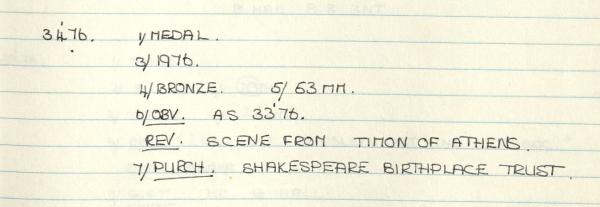 34'76. 1/ MEDAL.
3/ 1976.
4/ BRONZE. 5/ 63 MM.
6/ OBV. AS 33'76.
REV. SCENE FROM TIMON OF ATHENS.
7/ PURCH. SHAKESPEARE BIRTHPLACE TRUST.